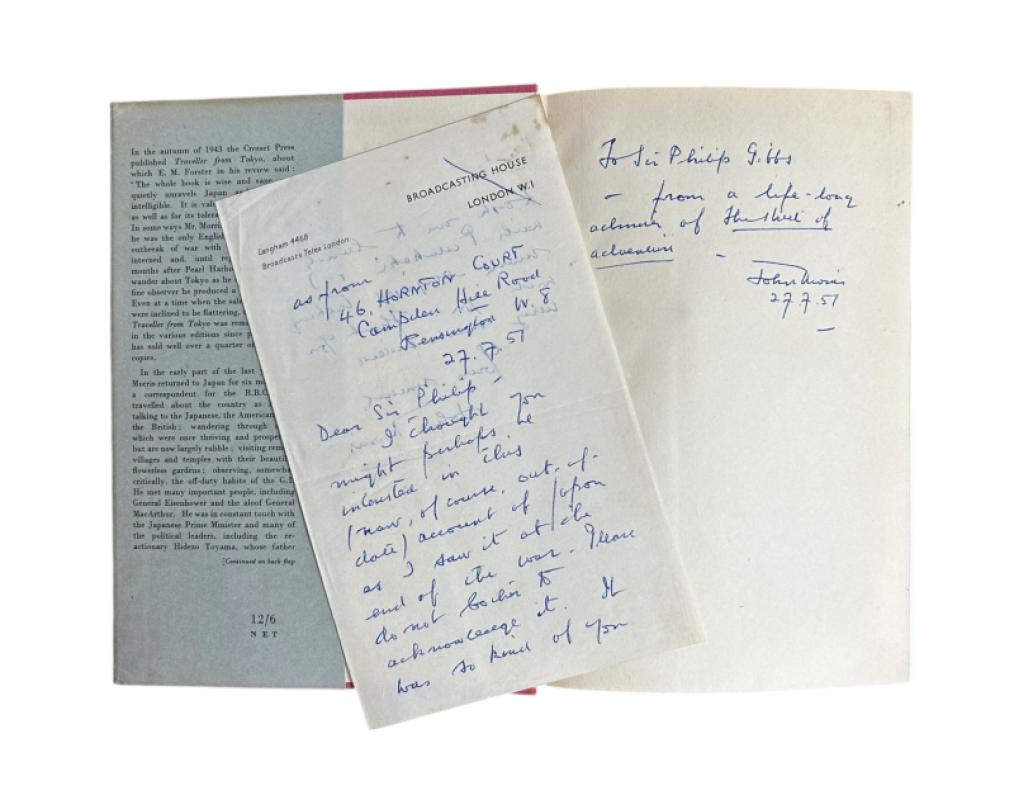 In the autumn of 1943 the Cresset Press
published Traveller from Tokyo, about
which E. M. Forster in his review said:
'The whole book is wise and sane
quietly unravels Japan
intelligible. It is
as well as for its
In some ways Mr.
he was the only
outbreak of war with
interned and, until
months after Pearl
wander about Tokyo as he
fine observer he produced a
Even at a time when the
were inclined to be flattering.
Traveller from Tokyo was
in the various editions since
has sold well over a quarter of
copies.
In the early part of the last
Morris returned to Japan for six
a correspondent for the
travelled about the country as
talking to the Japanese, the
the British; wandering through
which were once thriving and
but are now largely rubble; visiting
villages and temples with their
flowerless gardens; observing,
critically, the off-duty habits of the
He met many important people, including
General Eisenhower and the aloof General
MacArthur. He was in constant touch with
the Japanese Prime Minister and many of
the political leaders, including the re-
actionary Hidezo Toyama, whose father
[Continued on back flap
12/6
NET
BROADCASTING HOUSE
LONDON W.1
Langham 4468
Broadcasts Telex London
as from
46, HORNTON COURT
Campden Hill Road
Kensington W. 8
27.7.51
Dear Sir Philip –
I thought you
might perhaps be
interested in this
(now, of course, out-of-
date) account of Japan
as I saw it at the
end of the war. Please
do not bother to
acknowledge it. It
was so kind of you
To Sir Philip Gibbs
– from a life-long
admirer of The Street of
adventure –
John Morris
27.7.51